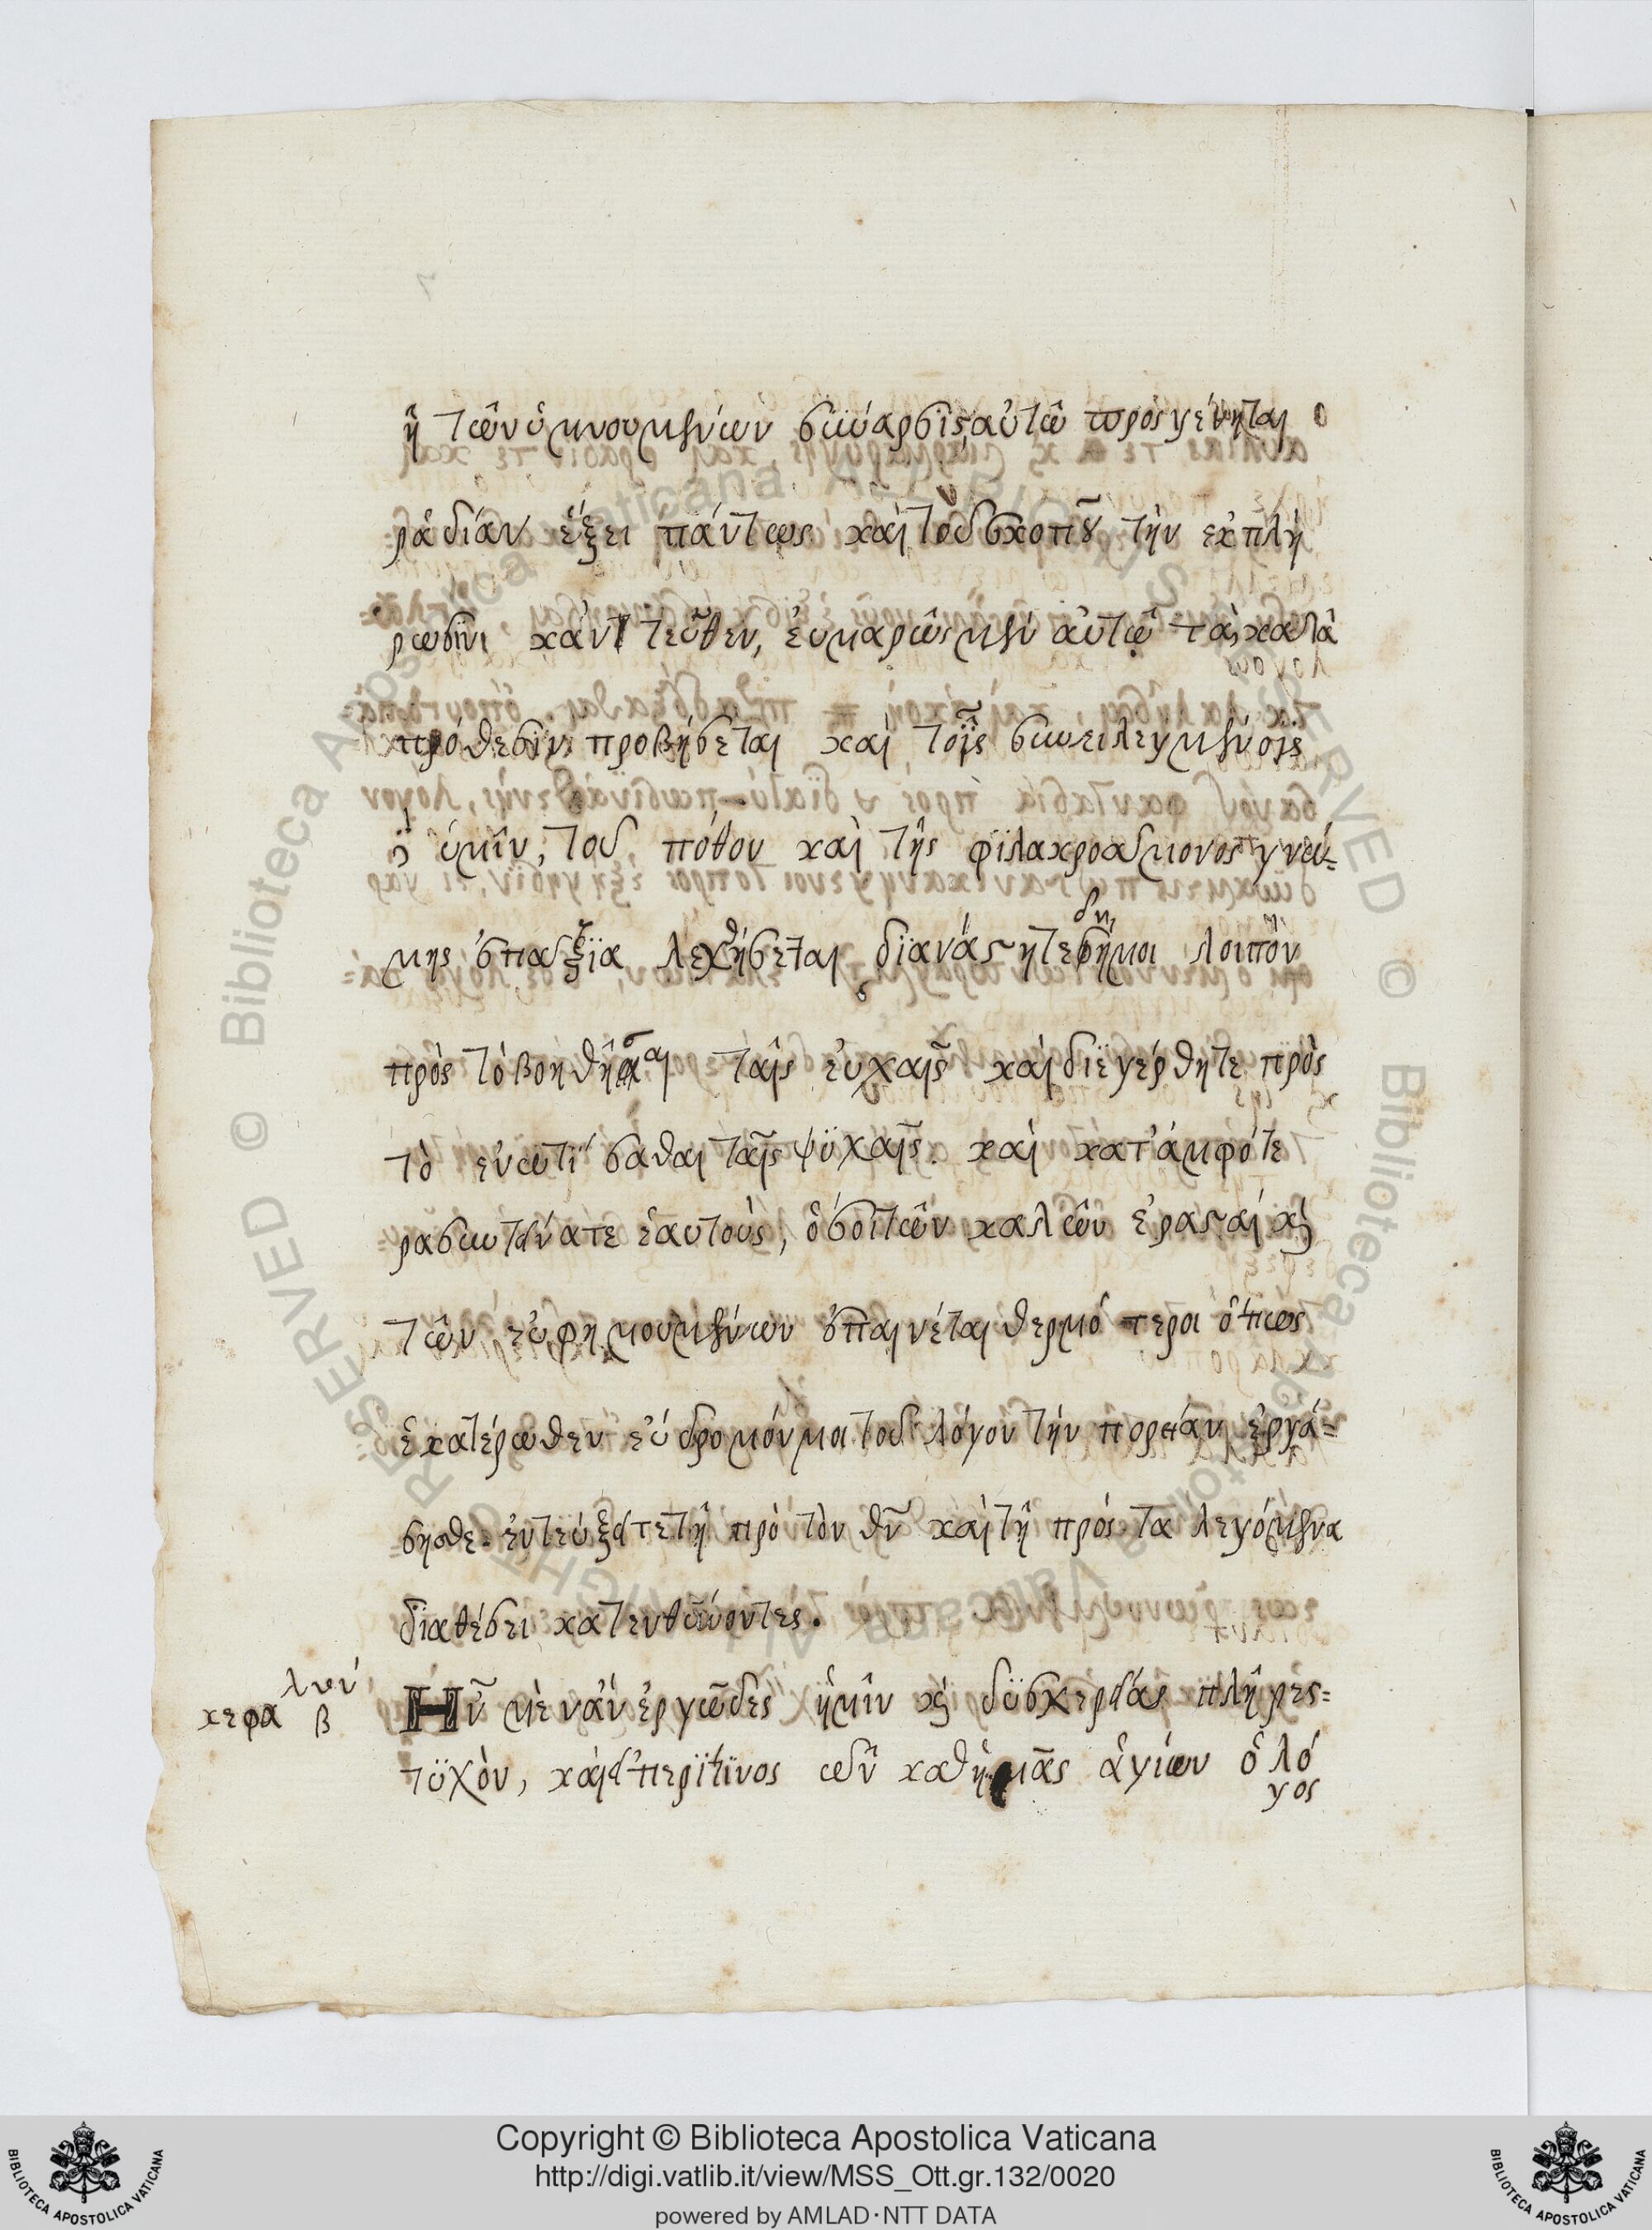 ἢ τῶν ὑμνουμένων συνάρσις αὐτῶ προσγένηται
ραδίαν ἕξει πάντως καὶ τοῦ σκοποῦ τὴν ἐκπλή
ρωσιν· κἀντεῦθεν, εὐμαρῶς μὲν αὐτῷ τὰ κατὰ
πρόθεσιν προβήσεται καὶ τοῖς συνειλεγμένοις
ὑμῖν, τοῦ πόθου καὶ τῆς φιλακροάμονος γνώ=
μης ἐπαξια λεχθήσεται διανάστητε δή μοι λοιπὸν
πρὸς τὸ βοηθῆσαι ταῖς εὐχαῖς καὶ διεγέρθητε πρὸς
τὸ ἐνωτίσασθαι ταῖς ψϋχαῖς. καὶ κατ' ἀμφότε
ρα συντείνατε ἑαυτοὺς, ὅσοι τῶν καλῶν ἐρασταί καὶ
τῶν εὐφημουμένων ἐπαινέται θερμότεροι ὅπως
ἑκατέρωθεν εὐδρομόν μοι τοῦ λόγου τὴν πορείαν ἐργά=
σησθε. ἐντεύξει τε τῆ πρὸ τὸν θν καὶ τῆ πρὸς τα λεγόμενα
διαθέσει κατευθύνοντες.
κεφαλον β
Ην μὲν ἀν ἐργῶδες ἡμῖν καὶ δϋσχερείας πλῆρες=
τϋχὸν, καὶ εἰ περί τινος τῶν καθ ἡμᾶς ἁγίων ὁ λό
γος
Copyright © Biblioteca Apostolica Vaticana
http://digi.vatlib.it/view/MSS_Ott.gr.132/0020
powered by AMLAD·NTT DATA